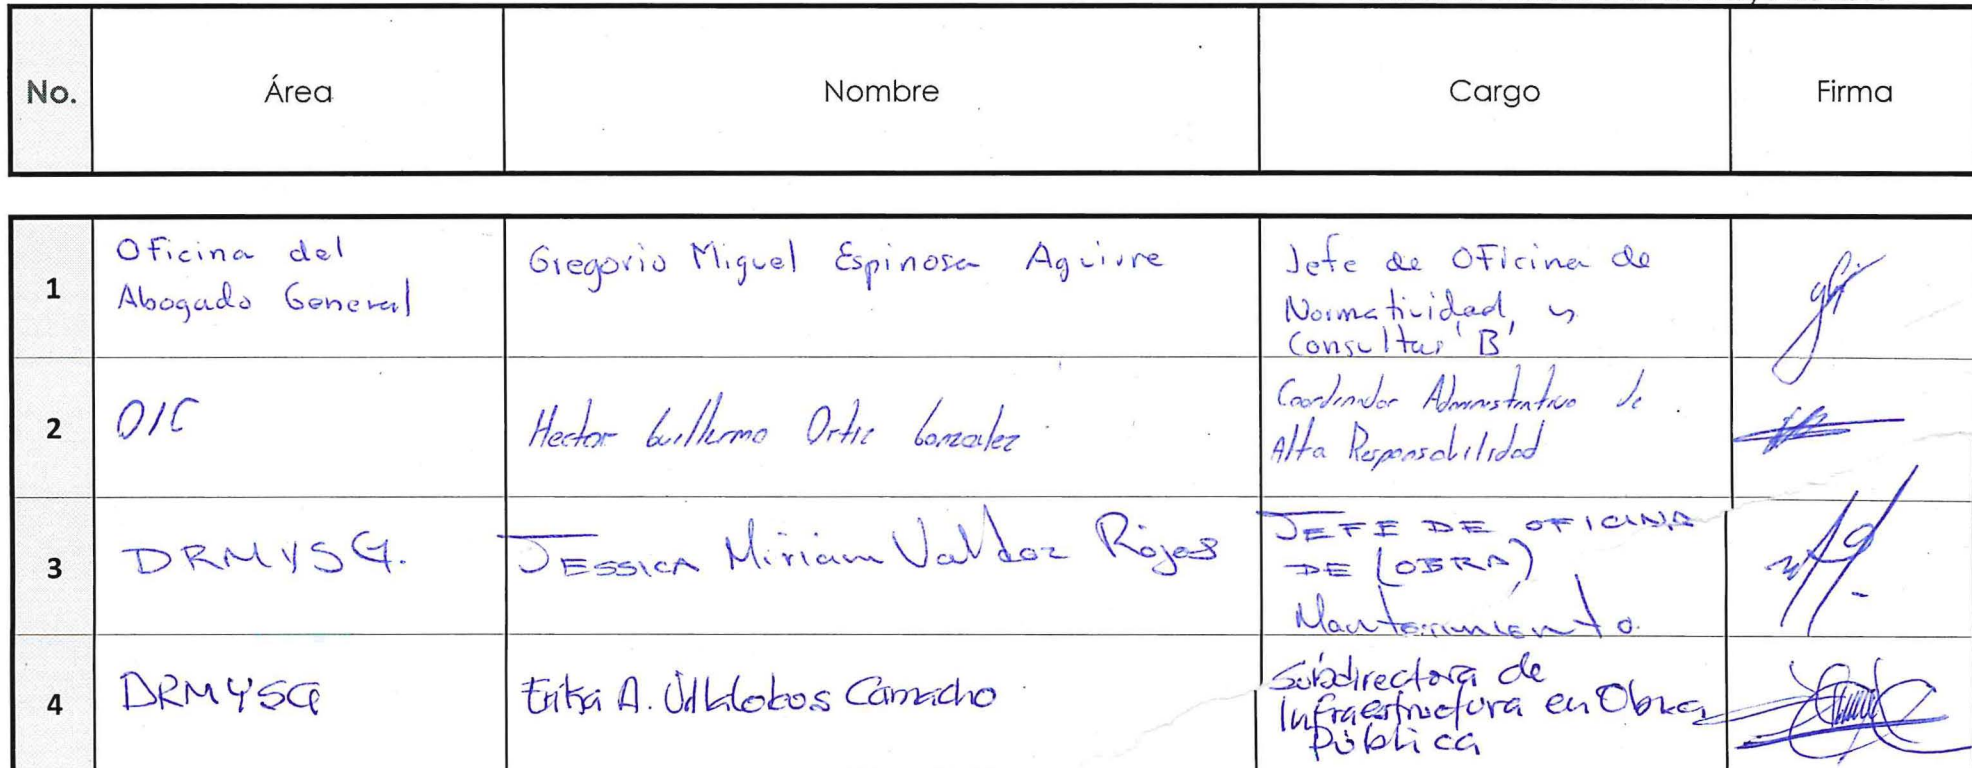 No. Área Nombre Cargo Firma
1 Oficina del Abogado General Gregorio Miguel Espinosa Aguirre Jefe de Oficina de Normatividad y Consultas 'B'
2 OIC Hector Guillermo Ortiz Gonzalez Coordinador Administrativo de Alta Responsabilidad
3 DRMYSG. JESSICA Miriam Valdez Rojas JEFE DE OFICINA DE (OBRA) Mantenimiento.
4 DRMYSG Erika A. Villalobos Camacho Subdirectora de Infraestructura en Obra Pública